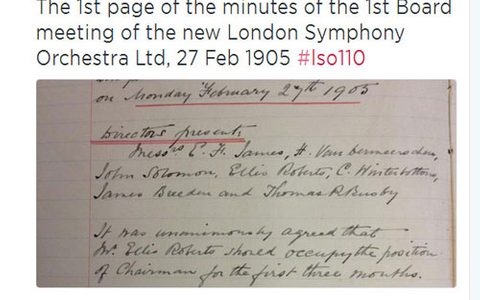 The 1st page of the minutes of the 1st Board
meeting of the new London Symphony
Orchestra Ltd, 27 Feb 1905 #lso110
on Monday February 27th 1905
Directors present,
Messrs E. F. James, H. Van der meerschen,
John Solomon, Ellis Roberts, C. Winterbottom,
James Breeden and Thomas R Busby
It was unanimously agreed that
Mr. Ellis Roberts should occupy the position
of Chairman for the first three months.